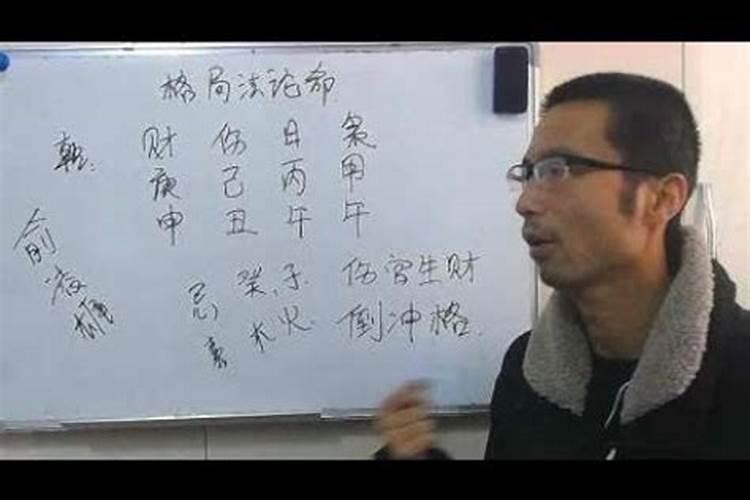 格局法论命
乾: 财 伤 日 枭
庚 己 丙 甲
申 丑 午 午
俞浚雄
忌 癸、子 伤官生财
喜 木 火 倒冲格